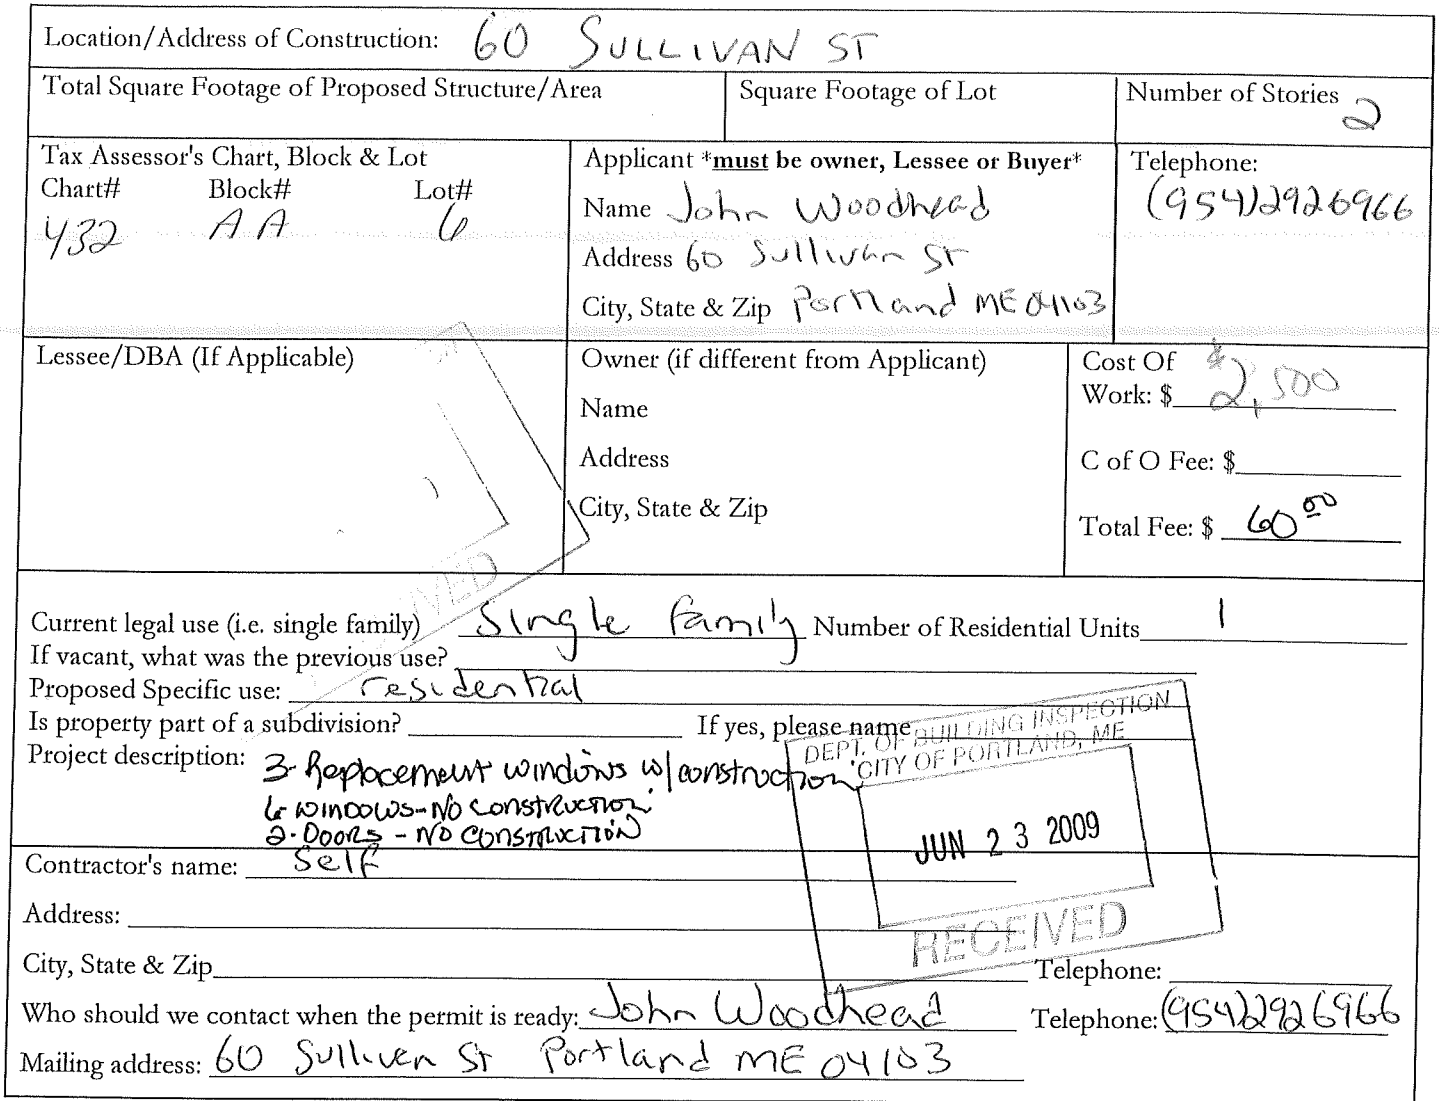 Location/Address of Construction: 60 SULLIVAN ST
Total Square Footage of Proposed Structure/Area
Square Footage of Lot
Number of Stories 2
Tax Assessor's Chart, Block & Lot
Chart# Block# Lot#
432 AA 6
Applicant *must be owner, Lessee or Buyer*
Name John Woodhead
Address 60 Sullivan St
City, State & Zip Portland ME 04103
Telephone:
(954)2926966
Lessee/DBA (If Applicable)
Owner (if different from Applicant)
Name
Address
City, State & Zip
Cost Of
Work: $ $2,500
C of O Fee: $
Total Fee: $ 60 00
Current legal use (i.e. single family) Single Family Number of Residential Units 1
If vacant, what was the previous use?
Proposed Specific use: residential
Is property part of a subdivision? If yes, please name
Project description: 3- Replacement windows w/ construction
6- WINDOWS - NO CONSTRUCTION
2- DOORS - NO CONSTRUCTION
DEPT. OF BUILDING INSPECTION
CITY OF PORTLAND, ME
JUN 23 2009
RECEIVED
Contractor's name: Self
Address:
City, State & Zip Telephone:
Who should we contact when the permit is ready: John Woodhead Telephone: (954)2926966
Mailing address: 60 Sulliven St Portland ME 04103